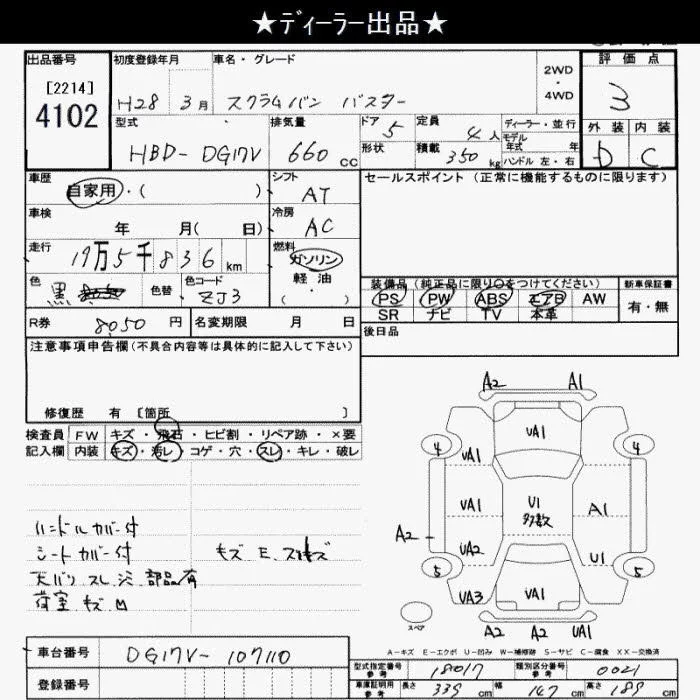 ★ディーラー出品★
出品番号 初度登録年月 車名・グレード 2WD・4WD 評価点
[2214]
4102
H28 3月 スクラムバン バスター 3
型式 排気量 ドア 5 定員 4人 ディーラー・並行 外装 内装
モデル年式 年
HBD-DG17V 660cc 形状 積載 350kg ハンドル 左・右 D C
車歴 自家用・( ) シフト AT セールスポイント (正常に機能するものに限ります)
車検 年 月( 日) 冷房 AC
走行 19万5千836km 燃料 ガソリン
軽油
・( )
色 黒 色替 色コード ZJ3
装備品(純正品に限り○をつけてください) 新車保証書
PS PW ABS エアB AW 有・無
SR ナビ TV 本革
R券 8050円 名変期限 月 日 後日品
注意事項申告欄(不具合内容等は具体的に記入して下さい)
修復歴 有 [箇所 ]
検査員 FW キズ・飛石・ヒビ割・リペア跡・×要
記入欄 内装 キズ・汚レ・コゲ・穴・スレ・キレ・破レ
ハンドルカバー付
シートカバー付 キズ E
天バリ スレ 部品有
荷室 キズ 凹
A2 A1
4 UA1 4
UA1
UA1 U1 多数 A1
A2 UA2 U1
5 UA1 5
UA3
スペア A2 A2 UA1
A-キズ E-エクボ U-凹み W-補修跡 S-サビ C-腐食 XX-交換済
車台番号 DG17V-107110
登録番号
型式指定番号 参考 18017 類別区分番号 参考 0021
車庫証明用 参考 長さ 339cm 幅 147cm 高さ 189cm